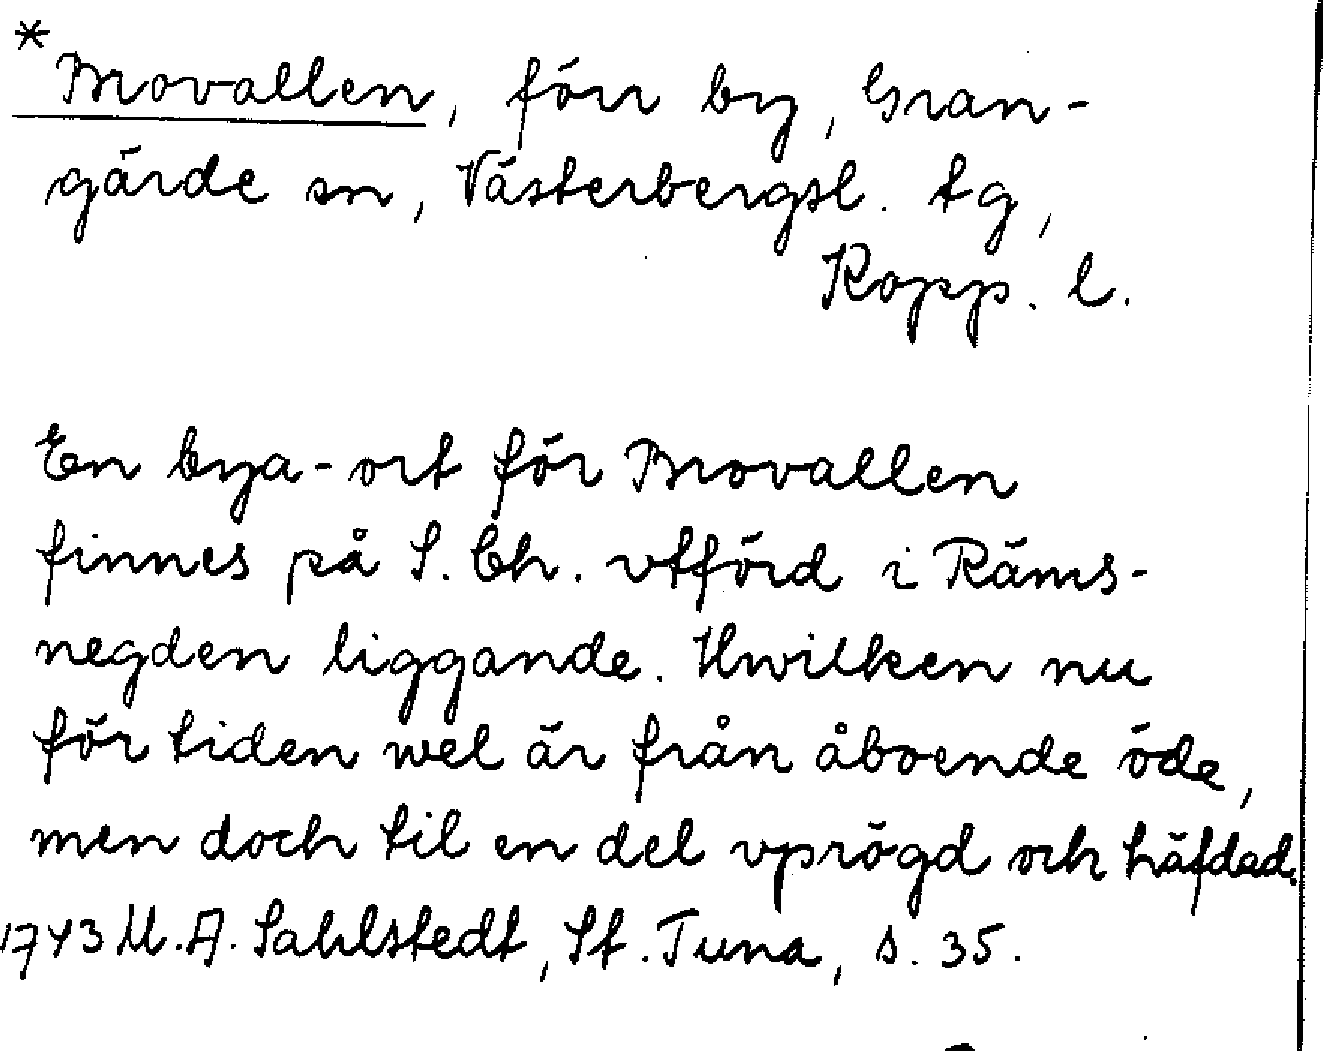 * Brovallen, förr by, Gran-
gärde sn, Västerbergsl. tg,
Kopp. l.
En bya-ort för Brovallen
finnes på S. Ch. vtförd i Räms-
negden liggande. Hwilken nu
för tiden wel är från åboende öde,
men doch til en del vprögd och häfdad.
1743 M. A. Sahlstedt, St. Tuna, s. 35.